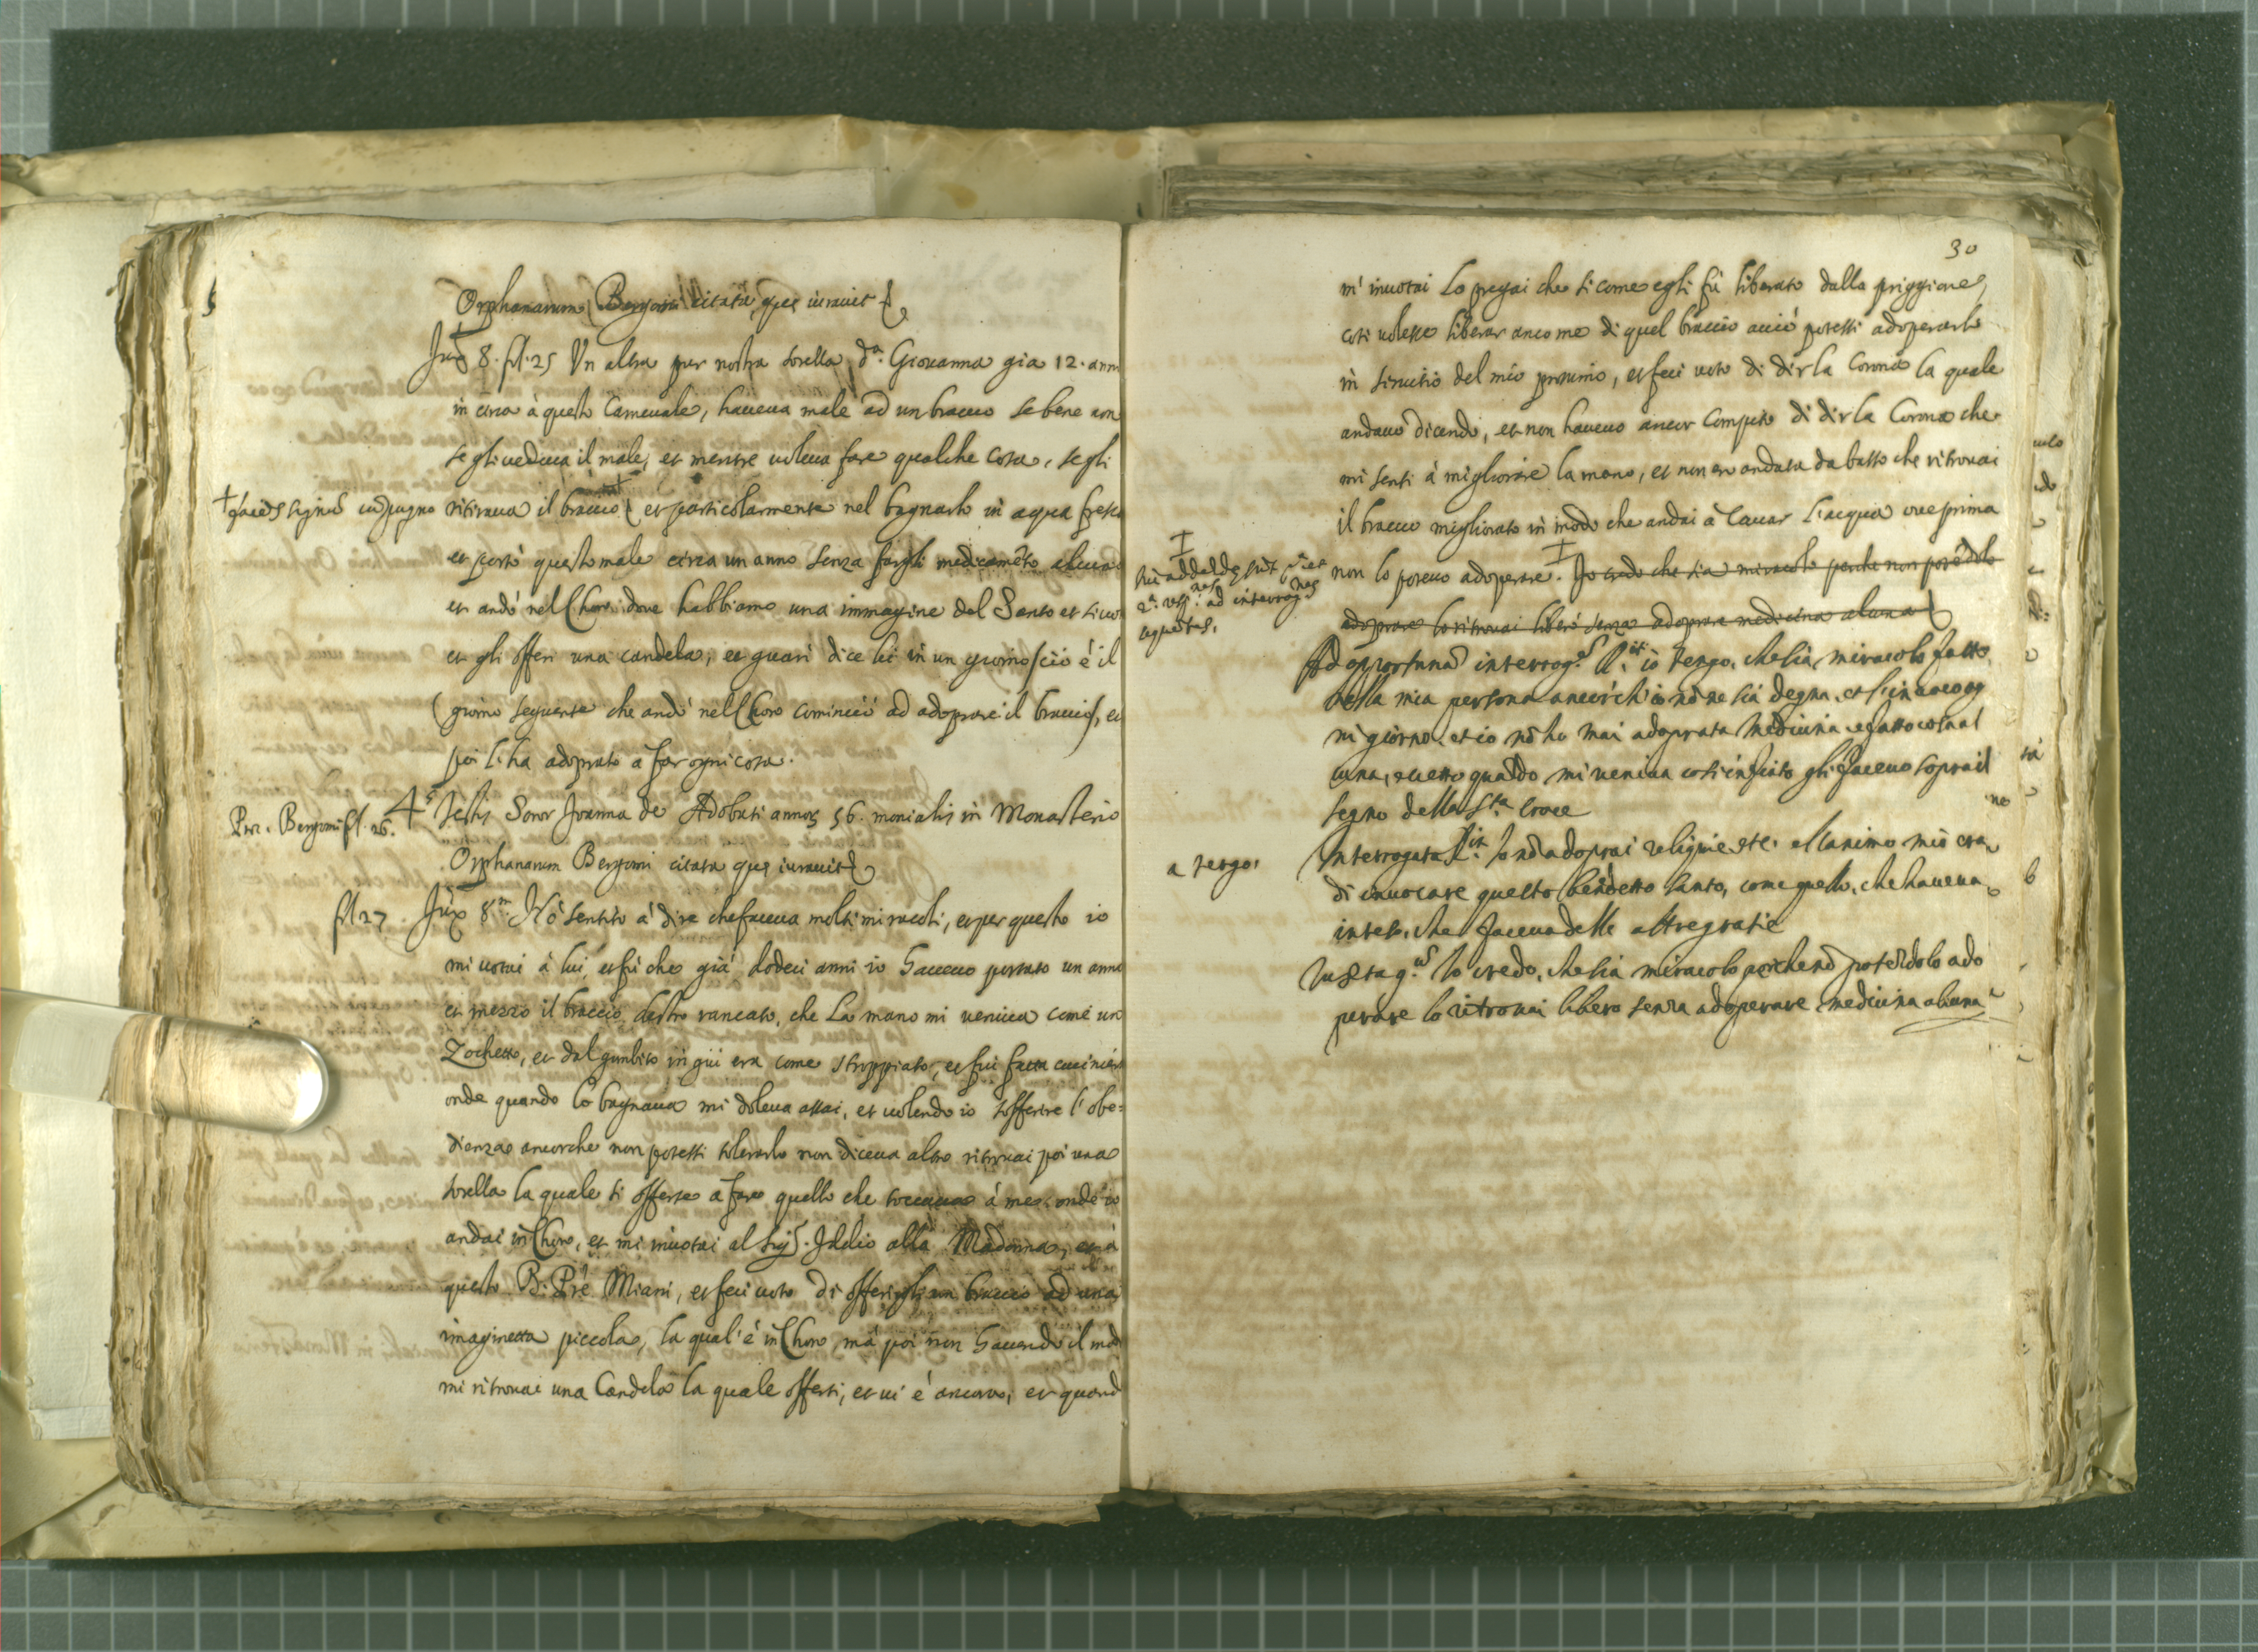 Orphanarum Bergomi citata, que iuravit
Jux. 8. fl. 25 Un altra pur nostra sorella d.ª Giovanna gia 12. anni
in circa à questo Carneuale, haueua male ad un braccio se bene non
se gli uedeua il male, et mentre uoleua fare qualche cosa, se gli
ritiraua il braccio et particolarmente nel bagnarlo in aqua fresca
et portò questo male circa un anno senza fargli medicamẽto alcuno
et andò nel Choro doue habbiamo una immagine del Santo et si uo
et gli offerì una candela, et guarì dice lei in un giorno cciò è il
giorno seguente che andò nel Choro cominciò ad adoprare il braccio, et
poi l'ha adoprato à far ogni cosa.
Pro. Bergomi fl. 26.
4.s Testis Soror Joanna de Adobati annoꝝ 56. monialis in Monasterio
Orphanarum Bergomi citata que iuravit
fl 27 Jux 8.m Hò sentito à dire che faceua molti miracoli, et per questo io
mi uotai à lui, et fù che già dodeci anni io haueuo portato un anno
et mezzo il braccio destro rancato, che la mano mi ueniua come un
Zochetto, et dal gombito in giù era come stroppiato, et fui fatta cuciniera
onde quando lo bagnaua mi doleua assai, et uolendo io sofferire l'obe=
dienza ancorche non potessi tolerarlo non diceua altro ritrouai poi una
sorella la quale si offerse à fare quello che toccaua à me onde io
andai in Choro, et mi inuotai al Sig.r Iddio alla Madonna, et à
questo B. Prẽ Miani, et feci uoto di offerirgli un braccio ad una
imaginetta piccola, la qual'è in Choro mà poi non hauendo il mod
mi ritrouai una Candela la quale offersi, et ui è ancora, et quand
30
m'inuotai lo pregai che si come egli fù liberato dalla priggione
così uolesse liberar ancome di quel braccio acciò potessi adoperarlo
in seruitio del mio prossimo, et feci uoto di dir la Corona la quale
andauo dicendo, et non haueuo ancor compito di dir la Corona che
mi sentì à migliorare la mano, et non ero andata da basso che ritrouai
il braccio migliorato in modo che andai à cauar l'acqua oue prima
non lo poteuo adoperare. Io credo che sia miracolo perche non potẽdolo
adoprare lo ritrouai libero senza adoprare medicina alcuna
sequentes.
Ad opportunã interrog.s R.it io tengo, che sia miracolo fatto
nella mia persona ancorch'io nõ ne sia degna, et l'inuoco og
ni giorno, et io nõ ho mai adoprata medicina, ne fatto cosa al
cuna, eccetto quãdo mi ueniua così infiato gli faceuo sopra il
segno della S.ta Croce
a tergo,
Interrogata R.it Io nõ adoprai reliquie ete. et l'animo mio era
di inuocare questo benedetto santo, come quello, che haueua
inteso, che faceua delle altre gratie
Io credo, che sia miracolo perche nõ potẽdolo ado
perare lo ritrouai libero senza adoperare medicina alcuna